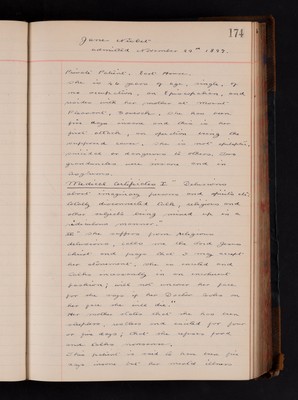 174
Jane Nisbet
admitted November 22nd 1899.
Private Patient, East House.
She is 44 years of age, single, of
no occupation, an Episcopalian, and
resides with her mother at Mount
Pleasant,          She has been
five days insane and this is her
first attack, no         being the
supposed cause. She is not epileptic,
suicidal or dangerous to others. One
grandmother was insane and in
asylums.
"Medical Certificates I" Delusions
about imaginary persons and
totally disconnected talk, religious and
other subjects being mixed up in a
ridiculous manner."
II "She suffers from religious
delusions, calls me the Lord Jesus
Christ and prays that I may accept
her atonement, she is excited and
talks incessantly in an incoherent
fashion; will not uncover her face
for she says if her Doctor looks on
her face she will die."
Her mother states that she has been
sleepless, restless and excited for four
or five days; that she refuses food
and talks nonsense.
This patient is said to have been five
days insane but her mental illness